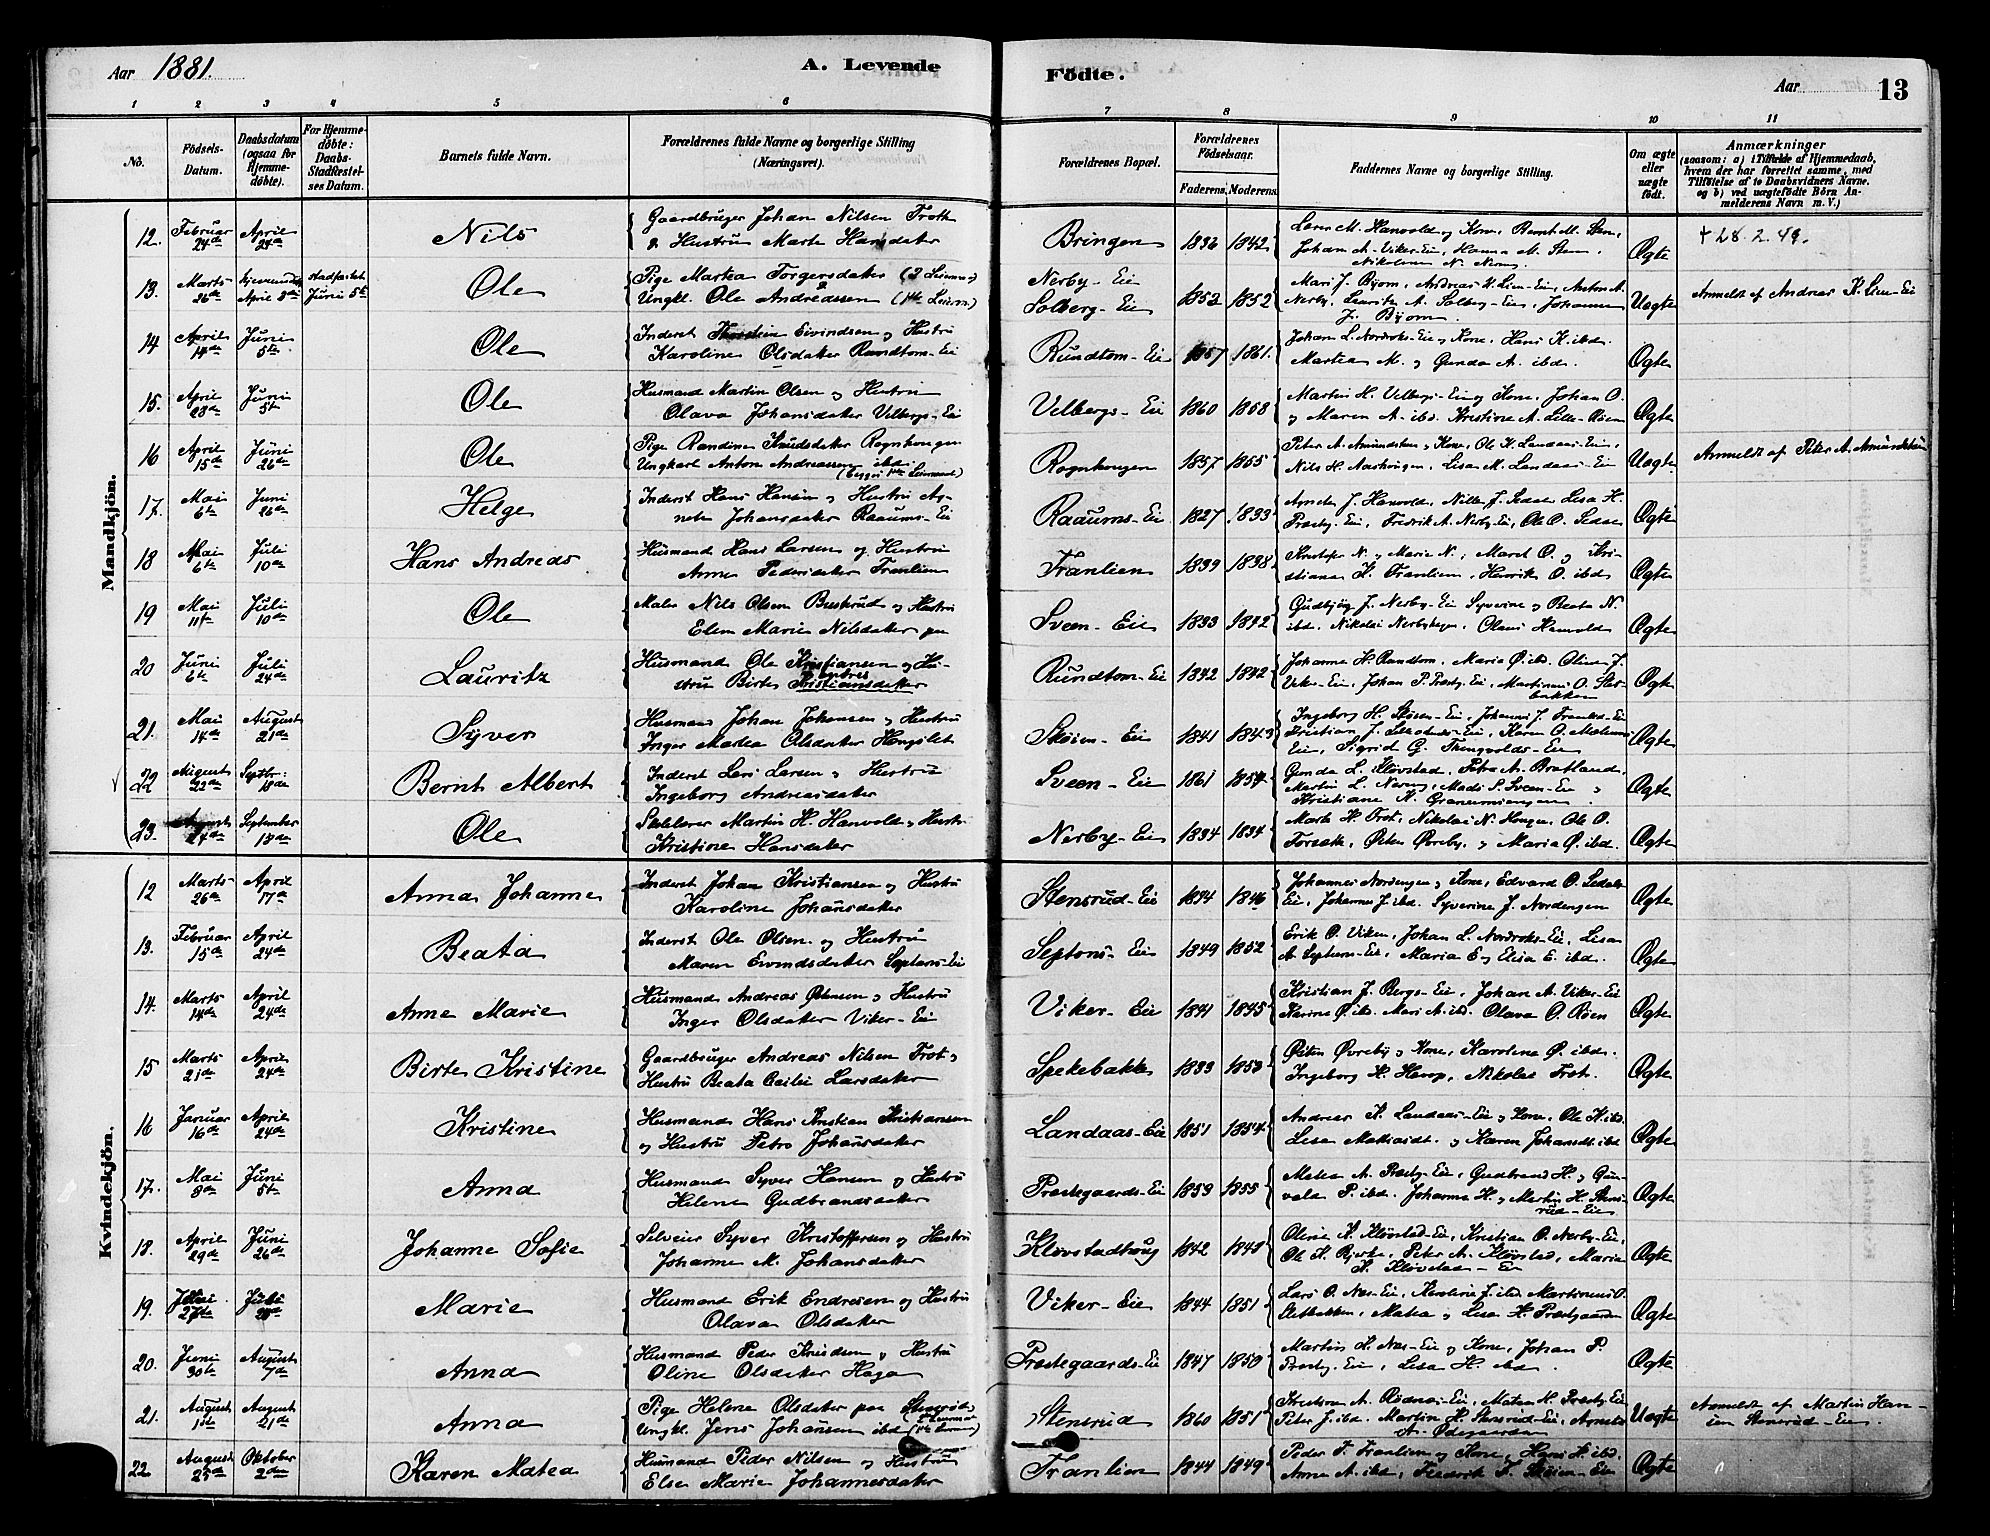 Aar 1881.
A. Levende
Födte.
Aar
13
1 2 3 4 5 6 7 8 9 10 11
No.
Födsels-
Datum.
Daabsdatum
(ogsaa for
Hjemme-
döbte).
For Hjemme-
döbte:
Daabs-
Stadfæstel-
ses Datum.
Barnets fulde Navn.
Forældrenes fulde Navne og borgerlige Stilling
(Næringsvei).
Forældrenes Bopæl.
Forældrenes
Födselsaar.
Faderens. Moderens.
Faddernes Navne og borgerlige Stilling.
Om ægte
eller
uægte
födt.
Anmærkninger
(saasom: a) i Tilfælde af Hjemmedaab,
hvem der har forrettet samme, med
Tilföielse af to Daabsvidners Navne,
og b) ved uægtefödte Börn An-
melderens Navn m. V.)
Mandkjön.
12. Februar 24de April 24de Nils Gaardbruger Johan Nilsen Troth
& Hustru Marte Hansdater Bringen 1836 1842 Ægte + 28.2.49.
13. Marts 26de April 3die Stadfæstet Juni 5te Ole Pige Martea Torgersdater
Ungkl. Ole Andreassen Nerby-Eie
Solberg-Eie 1852 1852 Uægte Anmeldt af Andreas K. Lien-Eie
14 April 14de Juni 5te Ole Inderst Eivindsen og Hustru
Karoline Olsdater Rundtom-Eie Rundtom-Eie 1857 1861. Johan L. Nordroks-Eie og Kone, Hans K. ibd.
Martea M. og Gunda A. ibd. Ægte
15. April 28de Juni 5te Ole Husmand Martin Olsen og Hustru
Olava Johansdater Velbergs-Eie Velbergs-Eie 1860 1858 Martin H. Velbergs-Eie og Kone, Johan O.
og Maren A. ibd. Kristine A. Lille-Röen Ægte
16 April 15de Juni 26de Ole Pige Randine Knudsdater Rognhougen
Ungkarl Anton Andreassen ibd. Rognhougen 1857 1855 Peter A. Amundstuen og Kone, Ole K. Landaas-Eie,
Nils H. Lisa M. Landaas-Eie Uægte Anmeldt af Peter A. Amundstuen
17. Mai 6te Juni 26de Helge Inderst Hans Hansen og Hustru Ag-
nete Johansdater Raaums-Eie Raaums-Eie 1827 1833 Agnete J. Hanvold, Lisa H.
Fredrik A. Nerby-Eie, Ole O. Ægte
18 Mai 6te Juli 10de Hans Andreas Husmand Hans Larsen og Hustru
Anne Pedersdater Tranlien Tranlien 1839 1838 Kristofer N. og Marie N., Maret O. og Kri-
stiane K. Tranlien, Henrik O. ibd Ægte
19 Mai 11te Juli 10de Ole Maler Nils Olsen og Hustru
Elen Marie Nilsdater paa Sveen-Eie 1833 1842 Gudbjörg J. Nerby-Eie Syverine og Beata N.
ibd. Nikolai Nerbyhagen, Olaus Hanvold Ægte
20 Juni 6te Juli 24de Lauritz Husmand Ole Kristiansen og Hu-
stru Birte Kristiansdater Rundtom-Eie 1842 1842 Johanne H. Rundtom, Maria Ø. ibd. Oline J.
Viker-Eie, Johan P. Præstg-Eie, Martinus O. Slet-
bakken Ægte
21. Mai 14de August 21de Syver Husmand Johan Johansen og Hustru
Inger Matea Olsdater Hongslet Sköien-Eie 1841 1843 Ingeborg H. Sköien-Eie, Johannes J.
Kristian J. Karen O.
Eie, Sigrid G. Tingvolds-Eie Ægte
22 August 22de Septbr: 18de Bernt Albert Inderst Lars Larsen og Hustru
Ingeborg Andreasdater Sveen-Eie 1861 1854 Gunda L. Klövstad, Petra A. Bratland
Martin L. Mads S. Sveen-Eie og
Kristiane K. Ægte
23. August September 18de Ole Skolelærer Martin H. Hanvold og Hustru
Kristine Hansdater Nerby-Eie 1834 1834 Marte H. Trot, Nikolai N. Haugen, Ole O.
Östen Övreby, og Maria Ø. ibd. Ægte
Kvindekjön.
12 Marts 26de April 17de Anna Johanne Inderst Johan Kristiansen og Hustru
Karoline Johansdater Stensrud-Eie 1844 1846 Johannes Nordengen og Kone, Edvard O.
Eie, Johannes J. ibd. Syverine J. Nordengen Ægte
13. Februar 15de April 24de Beata Inderst Ole Olsen og Hustru
Maren Eivindsdater Septons-Eie Septons-Eie 1849 1852 Erik O. Viken, Johan L. Nordroks-Eie, Lisa
A. Maria E og Elisa E. ibd. Ægte
14. Marts 14de April 24de Anne Marie Husmand Andreas Östensen og Hustru
Inger Olsdater Viker-Eie Viker-Eie 1841 1845 Kristian J. Bergs-Eie, Johan A. Viker-Eie
Karine Ø. ibd. Mari A. ibd. Olava O. Röen Ægte
15 Marts 21de April 24de Birte Kristine Gaardbruger Andreas Nilsen Trot og
Hustru Beata Cecilie Larsdater Spekebakke 1833 1853 Östen Övreby og Kone, Karoline Ø. ibd.
Ingeborg H. Nikolai Trot. Ægte
16 Januar 16de April 24de Kristine Husmand Hans Kristian Kristiansen
og Hustru Petro Johansdater Landaas-Eie 1851 1854 Andreas K. Landaas-Eie og Kone, Ole K. ibd
Lisa Mathiasdt. og Karen Johansdt. ibd Ægte
17. Mai 8de Juni 5te Anna Husmand Syver Hansen og Hustru
Helene Gudbrandsdater Præstegaards-Eie 1859 1855 Matea A. Præstg-Eie, Gudbrand H. og Gun-
vale P. ibd. Johanne H. og Martin H. Stens-
rud-Eie Ægte
18. April 29de Juni 26de Johanne Sofie Selveier Syver Kristoffersen og Hustru
Johanne M. Johansdater Klövstadhoug 1842 1843 Oline K. Klövstad-Eie, Kristian O. Nerby-Eie,
Ole K. Bjerke, Peter A. Klövstad, Maria
K. Klövstad-Eie Ægte
19. Juni 27de Juli Marie Husmand Erik Endresen og Hustru
Olava Olsdater Viker-Eie 1844 1851 Lars O. Næs-Eie, Karoline J. ibd Martinus O.
Sletbakken, Matea og Lisa H. Præstgaarden Ægte
20. Juni 30te August 7de Anna Husmand Peder Knudsen og Hustru
Oline Olsdater Haga Præstegaards-Eie 1847 1850 Martin H. Næs-Eie og Kone, Johan P.
Præstg-Eie, Lisa H. ibd. Ægte
21. August 1ste August 21de Anna Pige Helene Olsdater paa Stensrud
Ungkl. Jens Johansen ibd Stensrud 1860 1851 Kristian A. Rödnæs-Eie, Matea H. Præstg-Eie
Peter J. ibd. Martin H. Stensrud-Eie, Agnete
A. Ödegaarden Uægte Anmeldt af Martin Han-
sen Stensrud-Eie.
22 August 25de Oktober 2den Karen Matea Husmand Peder Nilsen og Hustru
Else Marie Johannesdater Tranlien 1844 1849 Peder T. Tranlien og Kone, Hans K. ibd.
Anne A. ibd, Fredrik F. Sköien-Eie Ægte